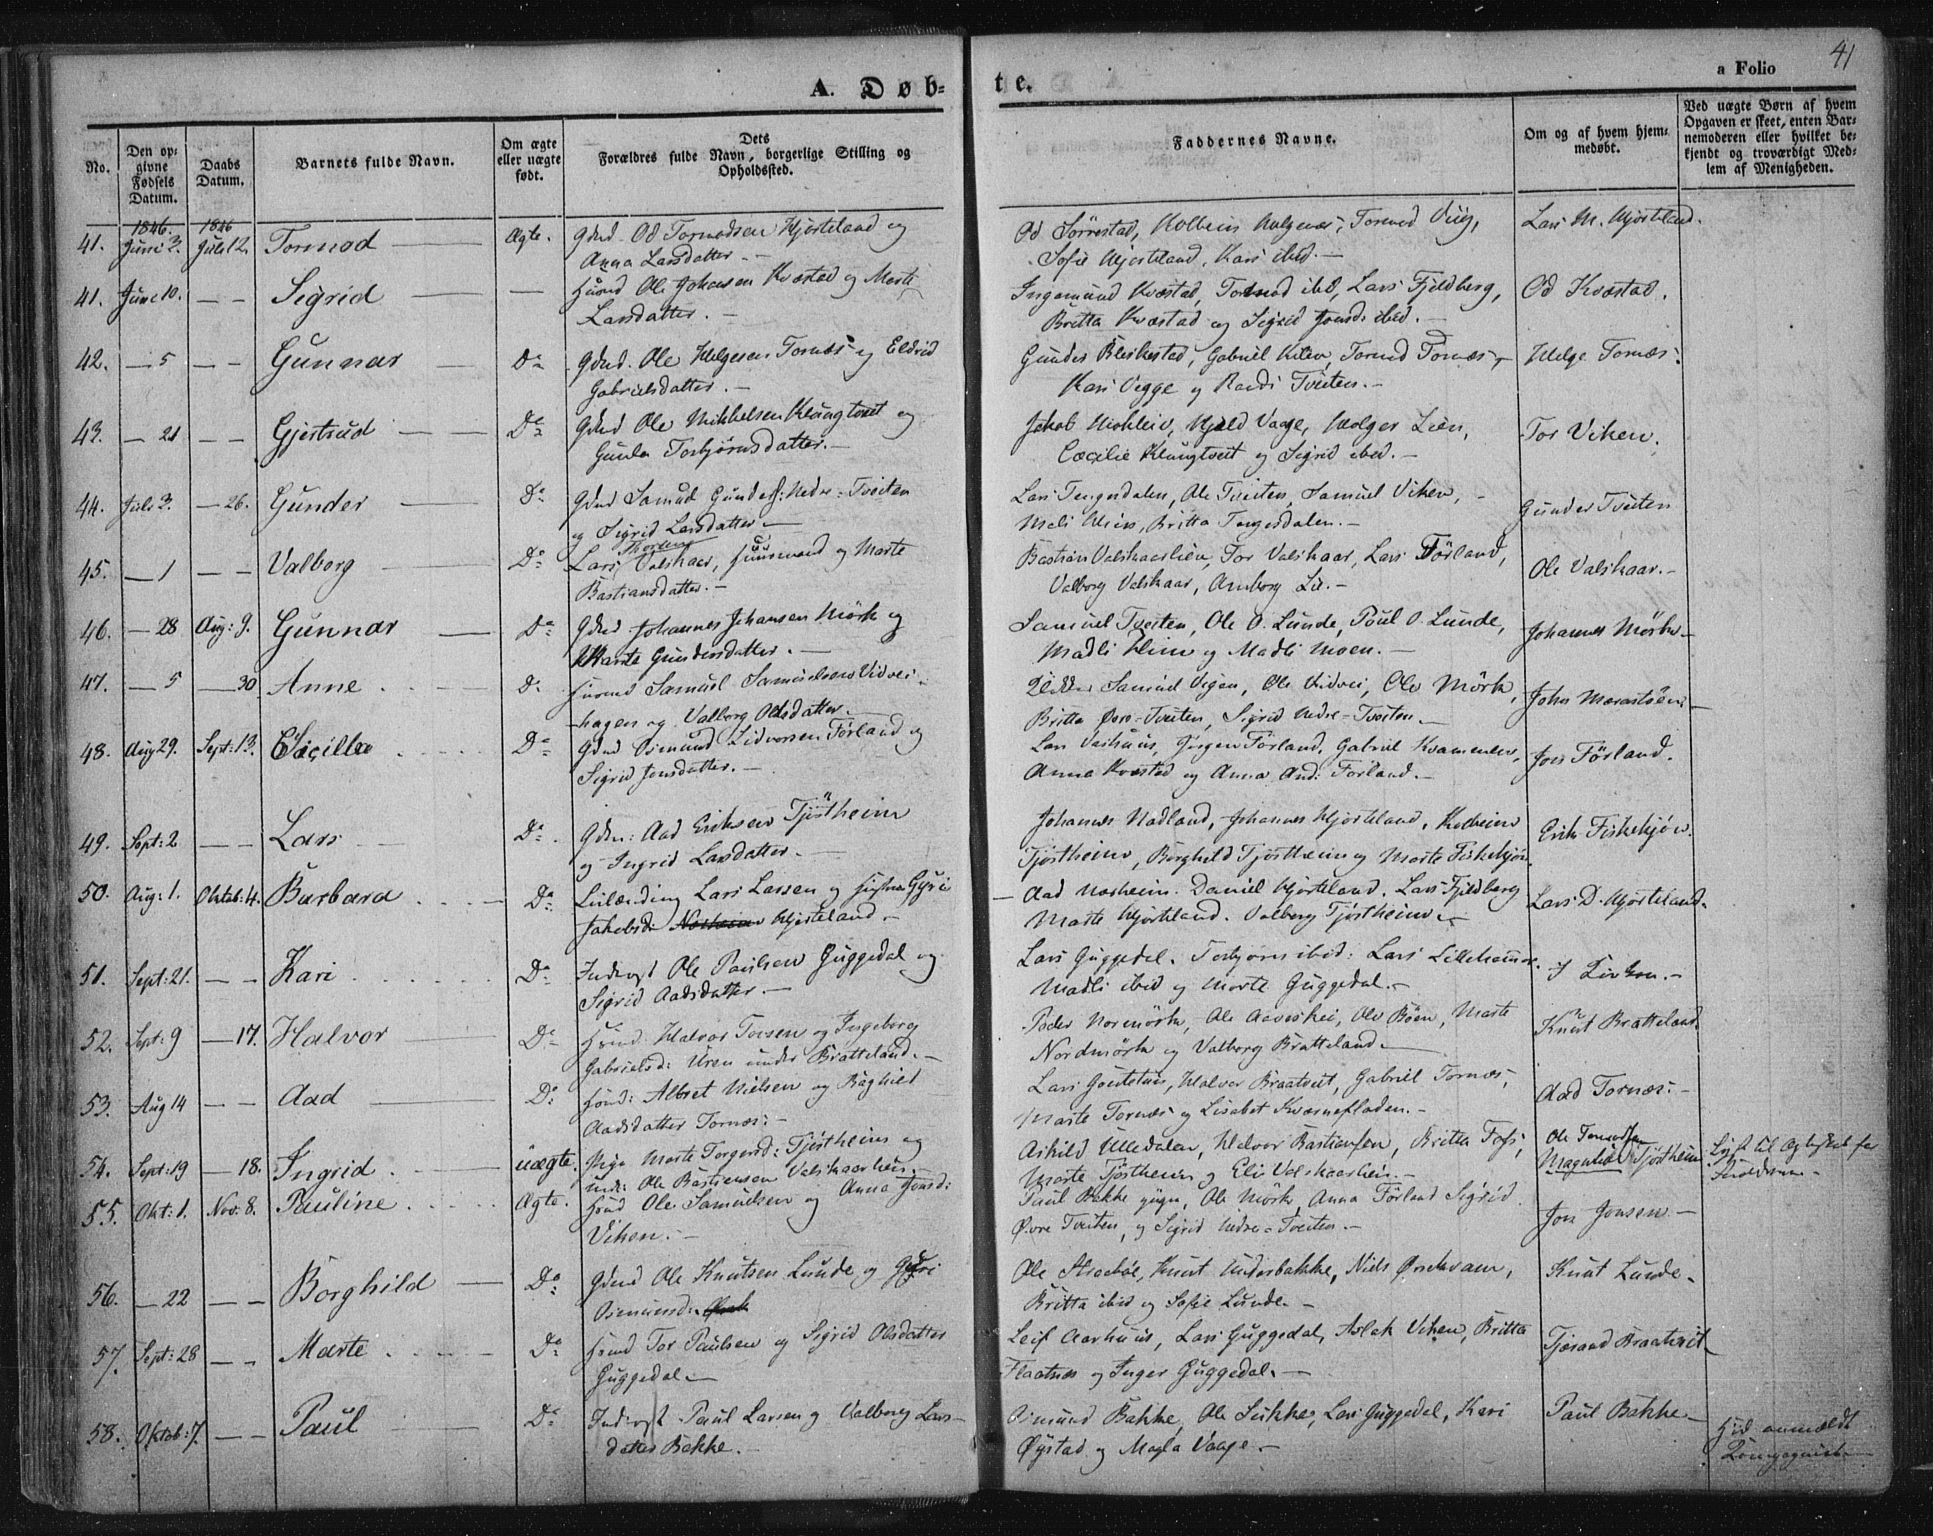 A. Døb-
te.
a Folio
41
No.
Den op-
givne
Fødsels
Datum.
Daabs
Datum.
Barnets fulde Navn.
Om ægte
eller uægte
født.
Dets
Forældres fulde Navn, borgerlige Stilling og
Opholdssted.
Faddernes Navne.
Om og af hvem hjem-
medøbt.
Ved uægte Børn af hvem
Opgaven er skeet, enten Bar-
nemoderen eller hvilket be-
kjendt og troværdigt Med-
lem af Menigheden.
1846. 1846
41. Juni 3. Juli 12. Tormod Ægte. Gdmd. Od Tormodsen Hjorteland og
Anna Larsdatter.
Od Sørrestad, Kolbein, Tormod Viig,
Sofie Hjorteland, Kari ibid.
Lars M. Hjorteland.
41. Juni 10. — — Sigrid — Huusmd Ole Johnsen Kvæstad og Marti
Larsdatter.
Ingemund Kvæstad, Tormod ibd, Lars Fjeldberg,
Britta Kvæstad og Sigrid Jonsd: ibid.
Od Kvæstad.
42. — 5 — — Gunnar Do Gdmd. Ole Helgesen Tornæs og Eldrid
Gabrielsdatter.
Gunder Bleskestad, Gabriel Kilen, Tormod Tornæs,
Kari Vegge og Randi Tveiten.
Helge Tornæs.
43. — 21 — — Gjertrud Do Gdmd Ole Mikkelsen Klungtveit og
Gunla Torbjørnsdatter.
Jakob Mohlein, Hjeld Vaage, Holger Lien,
Cæcilie Klungtveit og Sigrid ibid.
Tor Viken.
44. Juli 3. — 26. Gunder Do Gdmd Samuel Gunders: Nedre-Tveiten
og Sigrid Larsdatter
Lars Tengesdalen, Ole Tveiten, Samuel Viken,
Meli Hiim, Britta Tengesdalen.
Gunder Tveiten
45. — 1 — — Valborg Do Lars Thorsen Valskaar, Huusmand og Marte
Bastiansdatter.
Bastian Valskaarlien, Tor Valskaar, Lars Førland,
Valborg Valskaar, Amborg Lie.
Ole Valskaar.
46. — 28 Aug: 9. Gunnar Do Gdmd Johannes Johansen Mörk og
Marta Gundersdatter.
Samuel Tveiten, Ole O. Lunde, Poul O. Lunde,
Madli Hiim og Madli Moen.
Johannes Mörk
47. — 5 — 30 Anne Do Huusmd Samuel Samuelsen Vidvei-
hagen og Valborg Olsdatter.
Samuel Vegen, Ole Vidvei, Ole Mörk,
Britta Øvre-Tveiten, Sigrid Nedre-Tveiten.
John
48. Aug 29. Sept: 13. Cicillie Do Gdmd Osmund Lidvorsen Førland og
Sigrid Jonsdatter.
Lars Vashuus, Jörgen Førland, Gabriel Kvammen,
Anna Kvæstad og Anna And: Førland.
Jon Förland.
49. Sept: 2 — — Lars Do Gdm: Aad Eriksen Tjöstheim
og Ingrid Larsdatter.
Johannes Nadland, Johannes Hjorteland, Kolbein
Tjöstheim, Borghild Tjöstheim og Marte Fiskekjøn.
Erik Fiskekjøn.
50. Aug: 1. Oktob: 4. Barbara Do Leilænding Lars Larsen og Hustru Gyri
Jakobsd: Hjorteland.
Aad Norheim. Daniel Hjorteland. Lars Fjeldberg
Marte Hjorteland. Valborg Tjöstheim.
Lars D. Hjorteland.
51. Sept: 21. — — Kari Do Inderst Ole Paulsen Guggedal og
Sigrid Aadsdatter.
Lars Guggedal. Torbjørn ibid: Lars Lillehammer.
Madli ibid og Marte Guggedal.
52. Sept: 9 — 17. Halvor Do Huusmd: Halvor Torsen og Ingeborg
Gabrielsd: Uren under Bratteland.
Peder Normörk, Ole Aaveskei, Ole Böen, Marte
Nordmörk og Valborg Bratteland.
Knut Bratteland
53. Aug 14 — — Aad Do Huusmd: Albret Nielsen og Raghild
Aadsdatter Tornæs:
Lars Goutetun, Halvor Braatveit, Gabriel Tornæs,
Marte Tornæs og Lisabet Kvernefladen.
Aad Tornæs:
54. Sept: 19 — 18. Ingrid uægte. Pige Marte Torgersd: Tjöstheim og
Ole Bastiensen Valskaarlien.
Askild Ulledalen, Halvor Bastiansen, Britta Foss,
Marte Tjöstheim og Eli Valskaarlien.
Ole Tormodsen
Magnhild Tjöstheim
55. Okt: 1. Nov: 8. Pauline Ægte. Huusmd Ole Samuelsen og Anna Jonsd:
Viken.
Paul Bakke, Ole Mörk, Anna Förland Sigrid
Øvre Tveiten, og Sigrid Nedre-Tveiten.
Jon Jonsen
56. — 22 — — Borghild Do Gdmd Ole Knutsen Lunde og Guri
Osmundsd:
Ole Straabøe, Knut Underbakke, Niels Ørekvam,
Britta ibid og Sofie Lunde.
Knut Lunde
57. Sept: 28 — — Marte Do Huusmd Tor Paulsen og Sigrid Olsdatter
Guggedal
Leif Aarhuus, Lars Guggedal, Aslak Viken, Britta
Flaatnes og Inger Guggedal.
Tjeraand Braatveit
58. Oktob: 7. — — Paul Do Inderst Paul Larsen og Valborg Lars-
datter Bakke.
Osmund Bakke, Ole Lukke, Lars Guggedal, Kari
Øystad og Magla Vaage.
Paul Bakke
Hid anmeldt